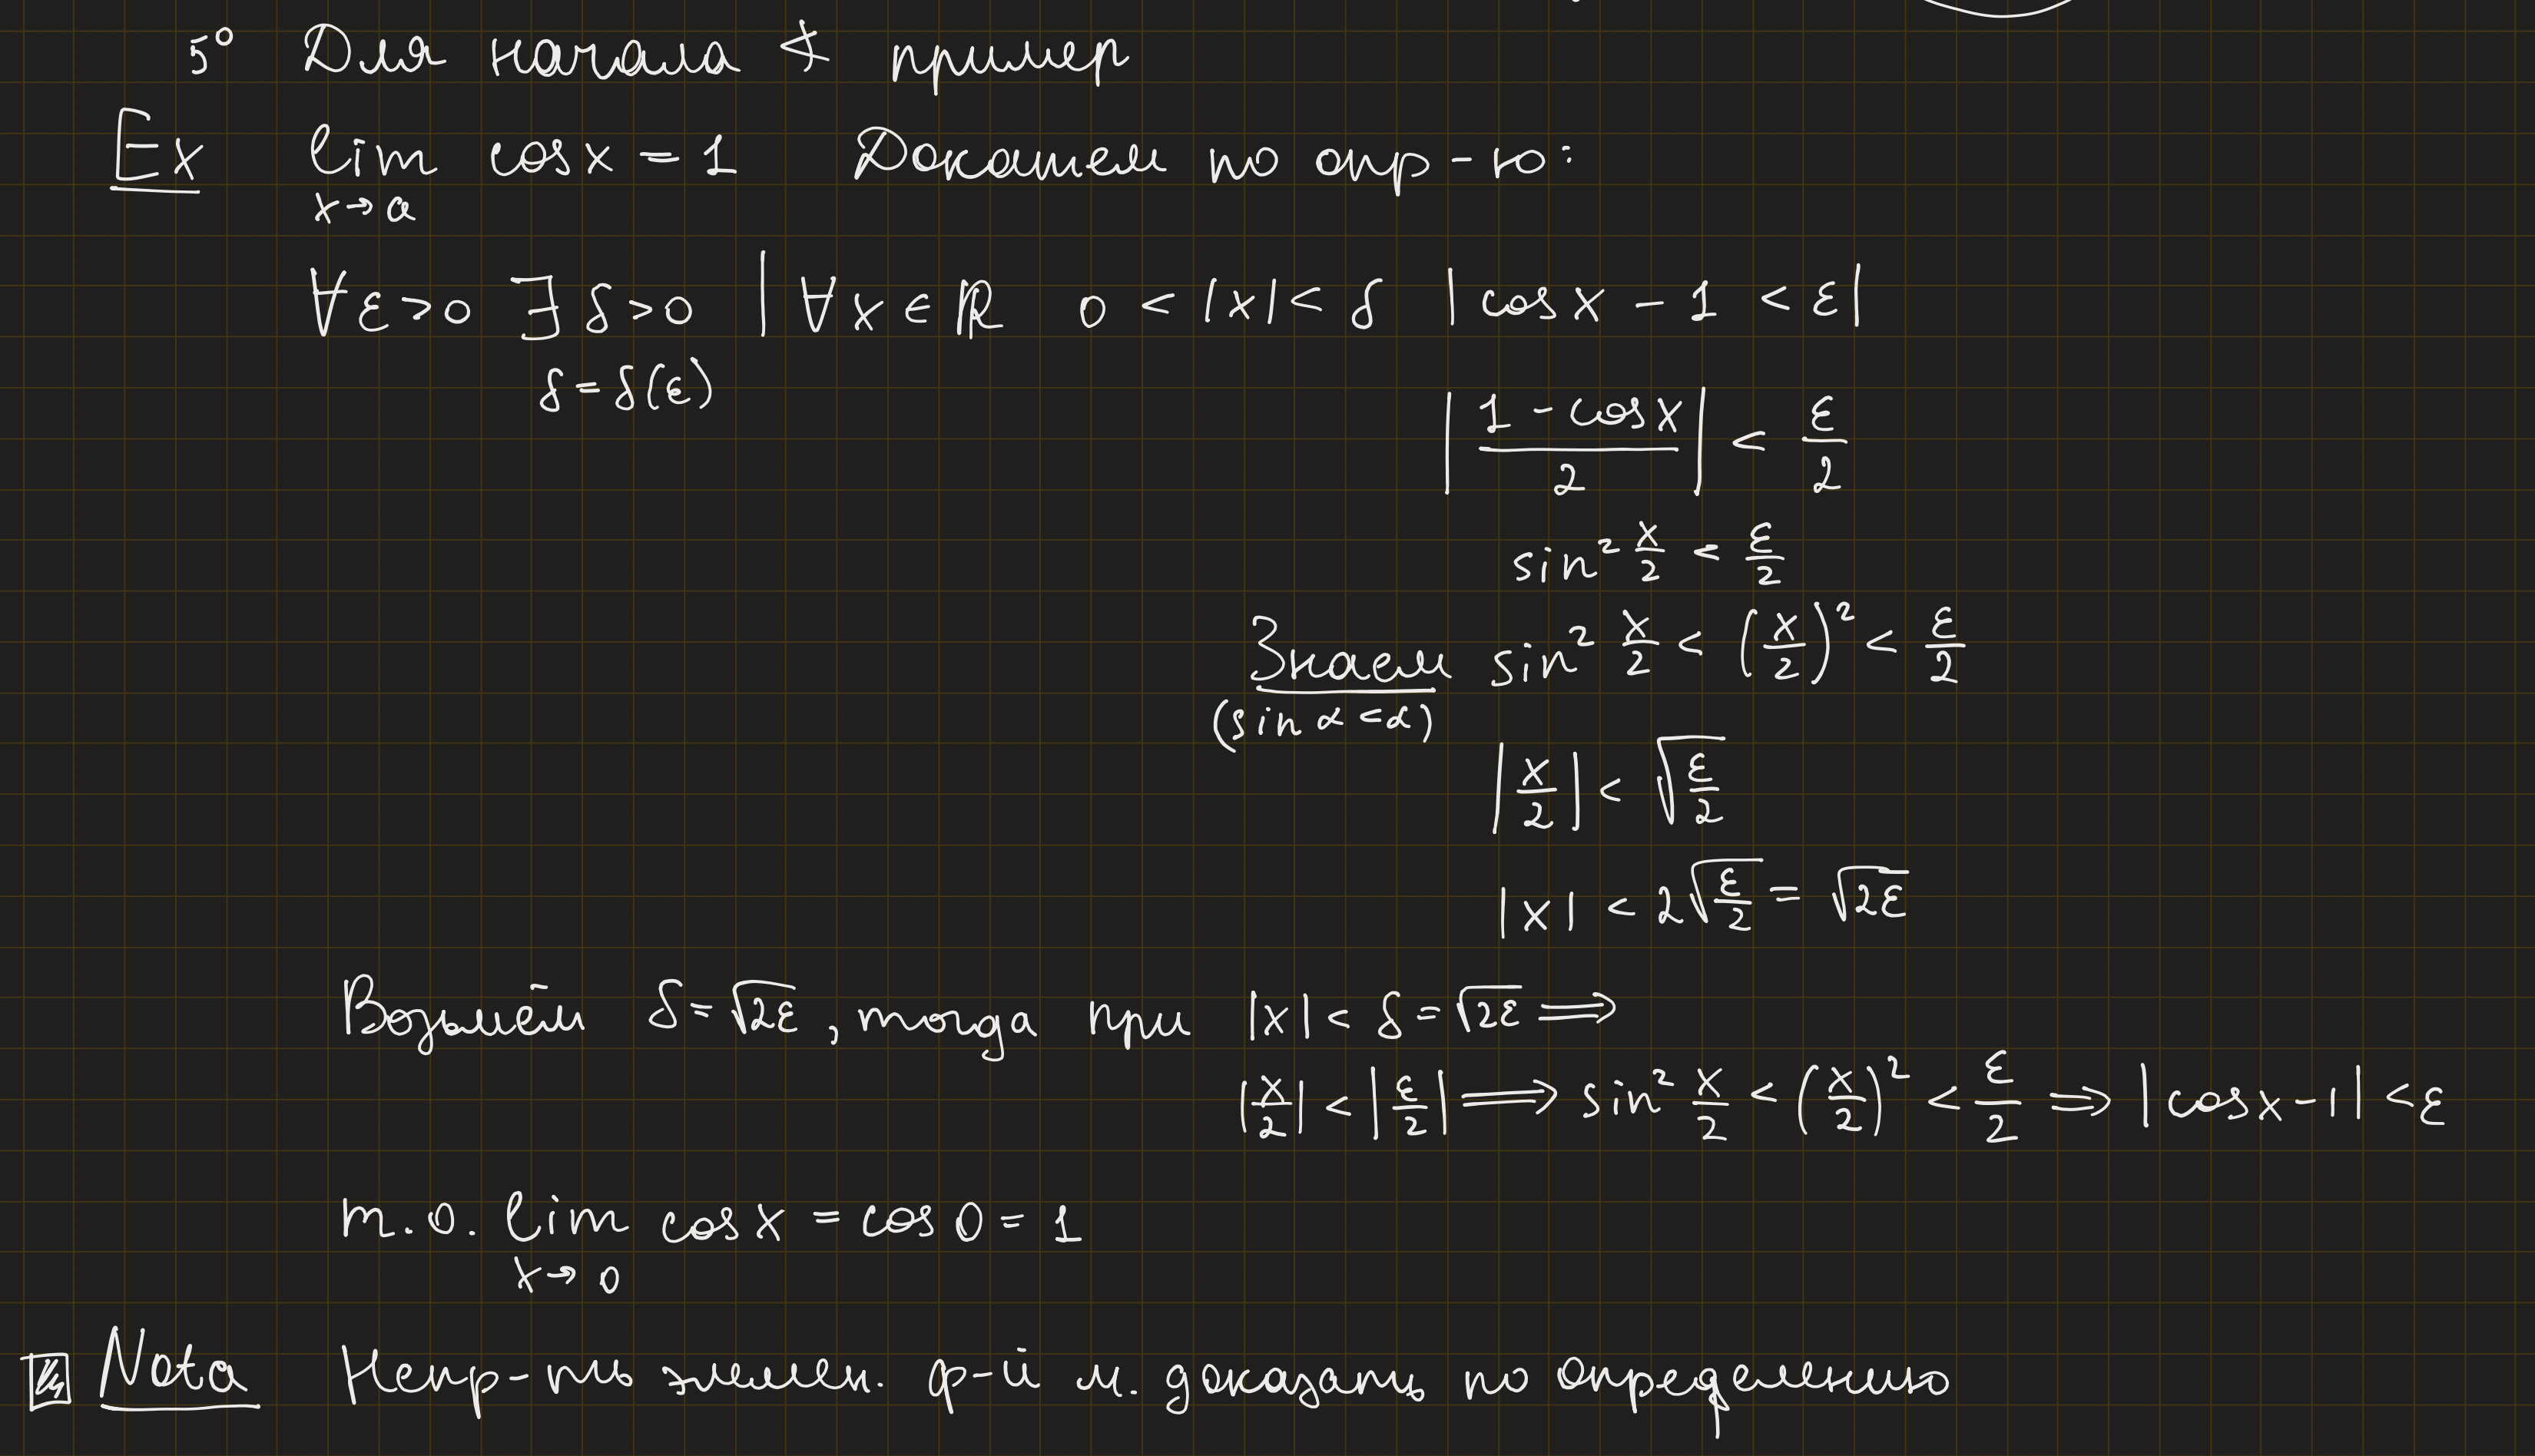 5° Для начала ∢ пример
Ex lim cos x = 1 Докажем по опр-ю:
x→a
∀ε>0 ∃δ>0 | ∀x∈ℝ 0 < |x| < δ |cos x − 1 < ε|
δ = δ(ε)
|(1 − cos x)/2| < ε/2
sin² x/2 < ε/2
Знаем sin² x/2 < (x/2)² < ε/2
(sin α < α)
|x/2| < √(ε/2)
|x| < 2√(ε/2) = √2ε
Возьмём δ = √2ε, тогда при |x| < δ = √2ε ⟹
|x/2| < |ε/2| ⟹ sin² x/2 < (x/2)² < ε/2 ⟹ |cos x − 1| < ε
т.о. lim cos x = cos 0 = 1
x→0
Nota Непр-ть элемен. ф-й м. доказать по определению